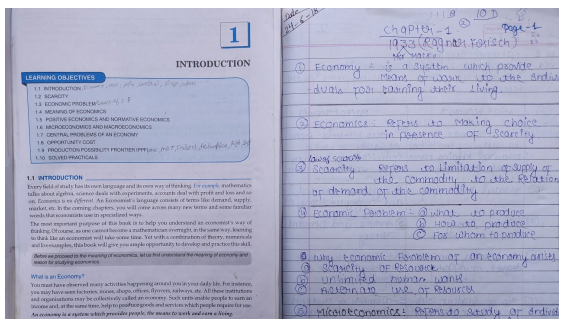 1
INTRODUCTION
LEARNING OBJECTIVES
1.1 INTRODUCTION
1.2 SCARCITY
1.3 ECONOMIC PROBLEM
1.4 MEANING OF ECONOMICS
1.5 POSITIVE ECONOMICS AND NORMATIVE ECONOMICS
1.6 MICROECONOMICS AND MACROECONOMICS
1.7 CENTRAL PROBLEMS OF AN ECONOMY
1.8 OPPORTUNITY COST
1.9 PRODUCTION POSSIBILITY FRONTIER (PPF)
1.10 SOLVED PRACTICALS
1.1 INTRODUCTION
Every field of study has its own language and its own way of thinking. For example, mathematics
talks about algebra, science deals with experiments, accounts deal with profit and loss and so
on. Economics is no different. An Economist's language consists of terms like demand, supply,
market, etc. In the coming chapters, you will come across many new terms and some familiar
words that economists use in specialized ways.
The most important purpose of this book is to help you understand an economist's way of
thinking. Of course, as one cannot become a mathematician overnight, in the same way, learning
to think like an economist will take some time. Yet with a combination of theory, numericals
and live examples, this book will give you ample opportunity to develop and practice this skill.
Before we proceed to the meaning of economics, let us first understand the meaning of economy and
reason for studying economics.
What is an Economy?
You must have observed many activities happening around you in your daily life. For instance,
you may have seen factories, mines, shops, offices, flyovers, railways, etc. All these institutions
and organisations may be collectively called an economy. Such units enable people to earn an
income and, at the same time, help to produce goods and services which people require for use.
An economy is a system which provides people, the means to work and earn a living.
Date
Chapter-1
Page-1
1933 (Ragnar Frisch)
① Economy = is a system which provide
Means of work to the indivi
duals for earning their living.
② Economics= Refers to Making choice
in presence of Scarcity
③ Scarcity Refers to Limitation of supply of
the commodity to the Relation
of demand of the commodity
④ Economic Problem = ⓐ what to produce
ⓑ How to produce
ⓒ For whom to produce
Why Economic Problem of an economy arises
ⓐ Scarcity of Resource
ⓑ Unlimited human want
ⓒ Alternate use of Resources
⑤ Microeconomics= Refers to study of individ